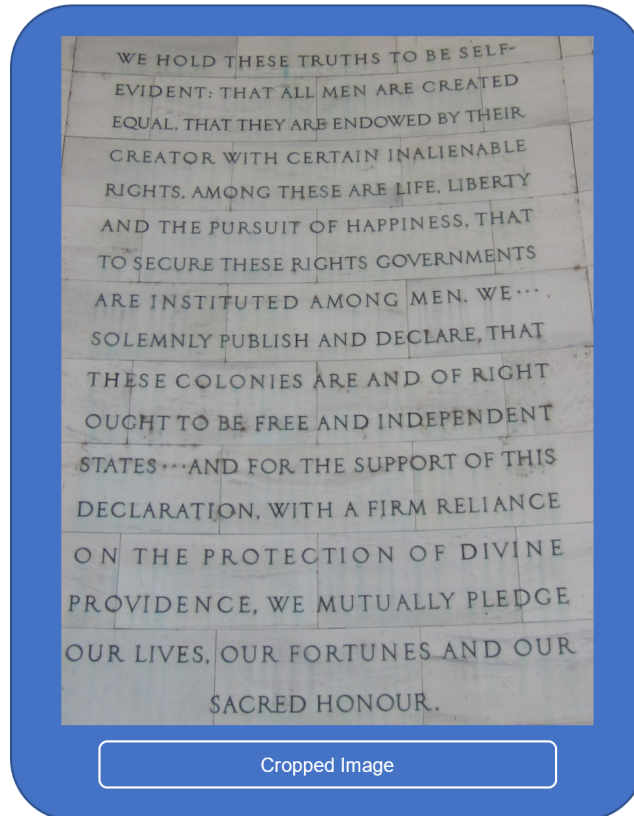 WE HOLD THESE TRUTHS TO BE SELF-
EVIDENT: THAT ALL MEN ARE CREATED
EQUAL, THAT THEY ARE ENDOWED BY THEIR
CREATOR WITH CERTAIN INALIENABLE
RIGHTS, AMONG THESE ARE LIFE, LIBERTY
AND THE PURSUIT OF HAPPINESS, THAT
TO SECURE THESE RIGHTS GOVERNMENTS
ARE INSTITUTED AMONG MEN. WE···
SOLEMNLY PUBLISH AND DECLARE, THAT
THESE COLONIES ARE AND OF RIGHT
OUGHT TO BE FREE AND INDEPENDENT
STATES···AND FOR THE SUPPORT OF THIS
DECLARATION, WITH A FIRM RELIANCE
ON THE PROTECTION OF DIVINE
PROVIDENCE, WE MUTUALLY PLEDGE
OUR LIVES, OUR FORTUNES AND OUR
SACRED HONOUR.
Cropped Image